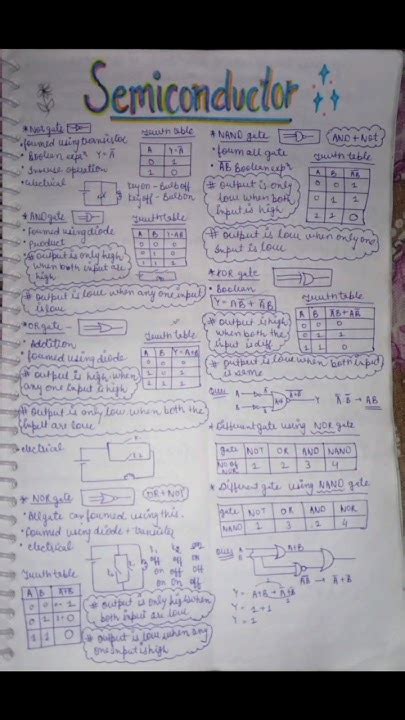 Semiconductor
* Not gate
• formed using transistor
• Boolean expⁿ Y = A̅
• Inverse operation
• electrical
key on - Bulb off
key off - Bulb on
Truth table
A Y = A̅
0 1
1 0
* AND gate
• formed using diode
• product
# output is only high
when both input are
high
Truth table
A B Y = AB
0 0 0
# output is low when any one input
is low
* OR gate
• Addition
• formed using diode
# output is high when
any one input is high
Truth table
A B Y = A+B
# output is only low when both the
input are low
• electrical
* NOR gate
OR + NOT
• All gate can formed using this.
• formed using diode + transistor
• electrical
off off on
on off off
on on off
Truth table
A B A+B
# output is only high when
both input are low
# output is low when any
one input is high
* NAND gate
AND + Not
• form all gate
• A̅B̅ Boolean expⁿ
# output is only
low when both
input is high
Truth table
A B A̅B̅
0 0 1
0 1 1
1 1 0
# output is low when only one
input is low
* XOR gate
• Boolean
Y = AB̅ + A̅B
# output is high
when both the
input is diff.
Truth table
A B
# output is low when both input
is same
Ques
A
B
Y
→ AB
* Different gate using NOR gate
gate NOT OR AND NAND
No of NOR 1 2 3 4
* Different gate using NAND gate
gate NOT OR AND NOR
NAND 1 3 2 4
Ques
A
B
A+B
Y = 1 + 1
Y = 1